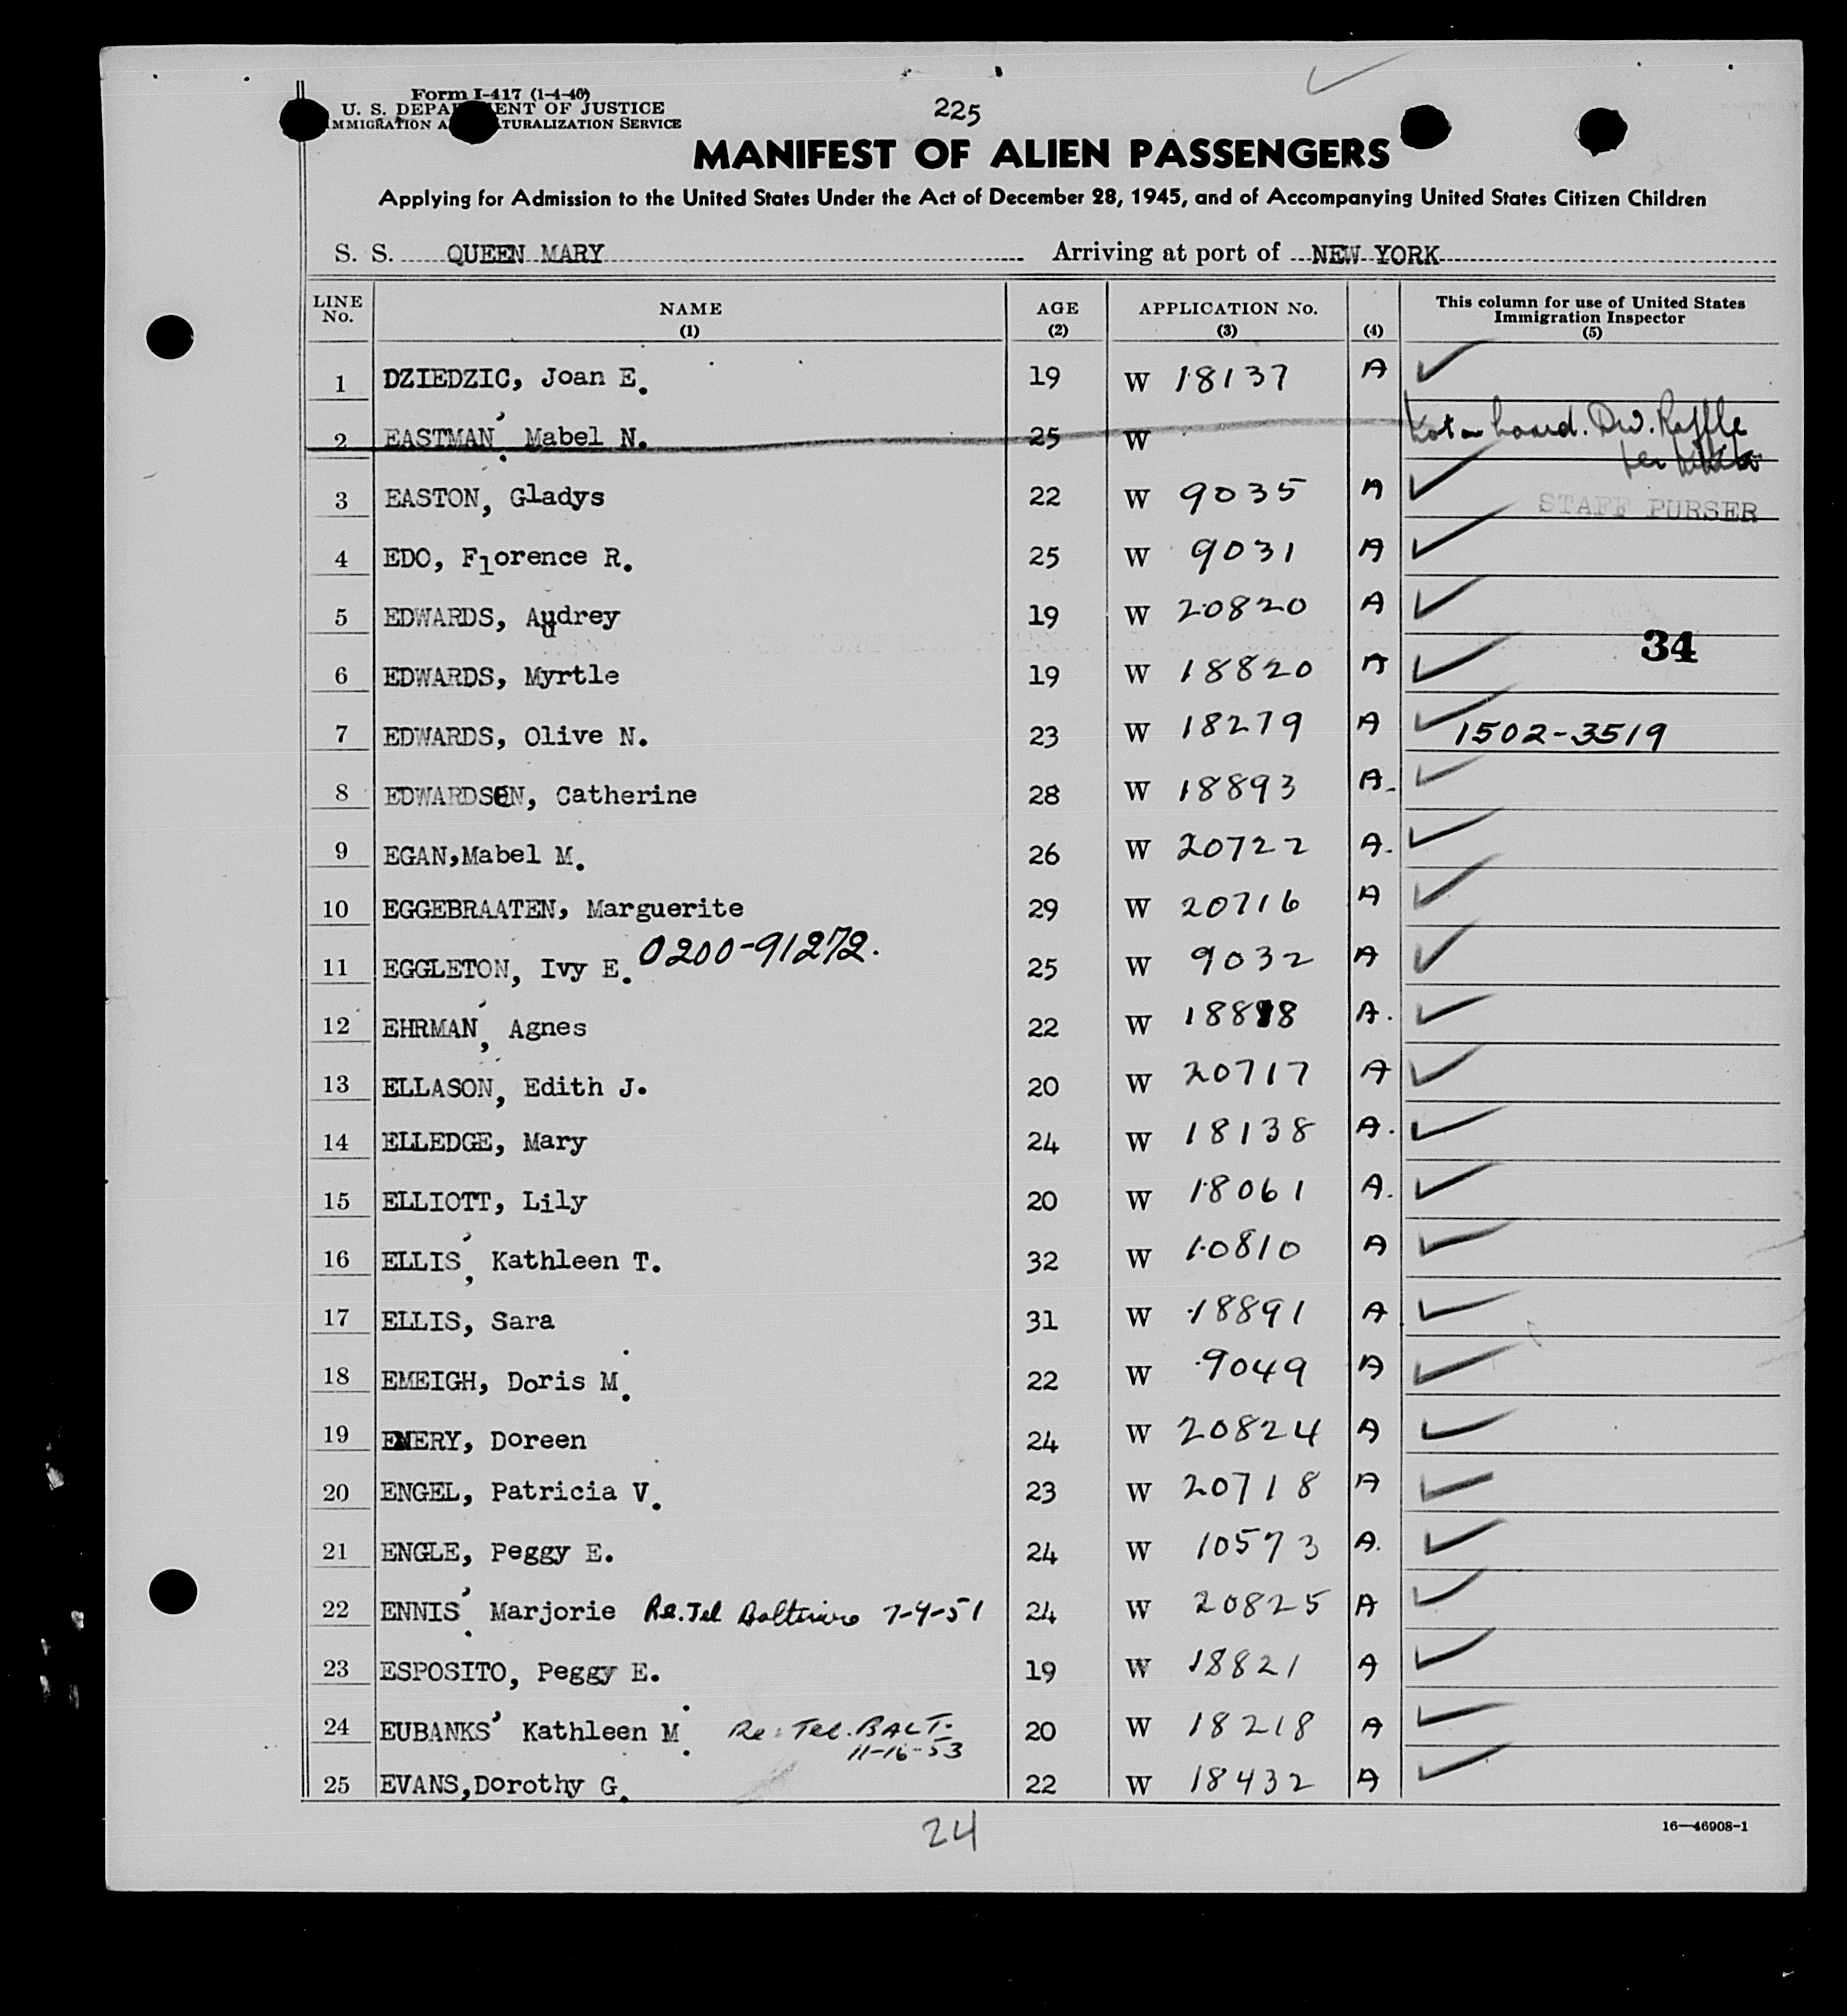 Form I-417 (1-4-46)
U. S. DEPARTMENT OF JUSTICE
IMMIGRATION AND NATURALIZATION SERVICE
225
MANIFEST OF ALIEN PASSENGERS
Applying for Admission to the United States Under the Act of December 28, 1945, and of Accompanying United States Citizen Children
S. S. QUEEN MARY Arriving at port of NEW YORK
LINE No. NAME (1) AGE (2) APPLICATION No. (3) (4) This column for use of United States Immigration Inspector (5)
1 DZIEDZIC, Joan E. 19 W 18137 A
2 EASTMAN, Mabel N. 25 W Not on board.
3 EASTON, Gladys 22 W 9035 A STAFF PURSER
4 EDO, Florence R. 25 W 9031 A
5 EDWARDS, Audrey 19 W 20820 A
34
6 EDWARDS, Myrtle 19 W 18820 A
7 EDWARDS, Olive N. 23 W 18279 A 1502-3519
8 EDWARDSEN, Catherine 28 W 18893 A.
9 EGAN,Mabel M. 26 W 20722 A.
10 EGGEBRAATEN, Marguerite 29 W 20716 A
11 EGGLETON, Ivy E. 0200-91272. 25 W 9032 A
12 EHRMAN, Agnes 22 W 18818 A.
13 ELLASON, Edith J. 20 W 20717 A
14 ELLEDGE, Mary 24 W 18138 A.
15 ELLIOTT, Lily 20 W 18061 A.
16 ELLIS, Kathleen T. 32 W 10810 A
17 ELLIS, Sara 31 W 18891 A
18 EMEIGH, Doris M. 22 W 9049 A
19 EMERY, Doreen 24 W 20824 A
20 ENGEL, Patricia V. 23 W 20718 A
21 ENGLE, Peggy E. 24 W 10573 A.
22 ENNIS, Marjorie Re. Tel Baltimore 7-4-51 24 W 20825 A
23 ESPOSITO, Peggy E. 19 W 18821 A
24 EUBANKS, Kathleen M. Re: Tel. BALT. 11-16-53 20 W 18218 A
25 EVANS,Dorothy G. 22 W 18432 A
24
16—46908-1